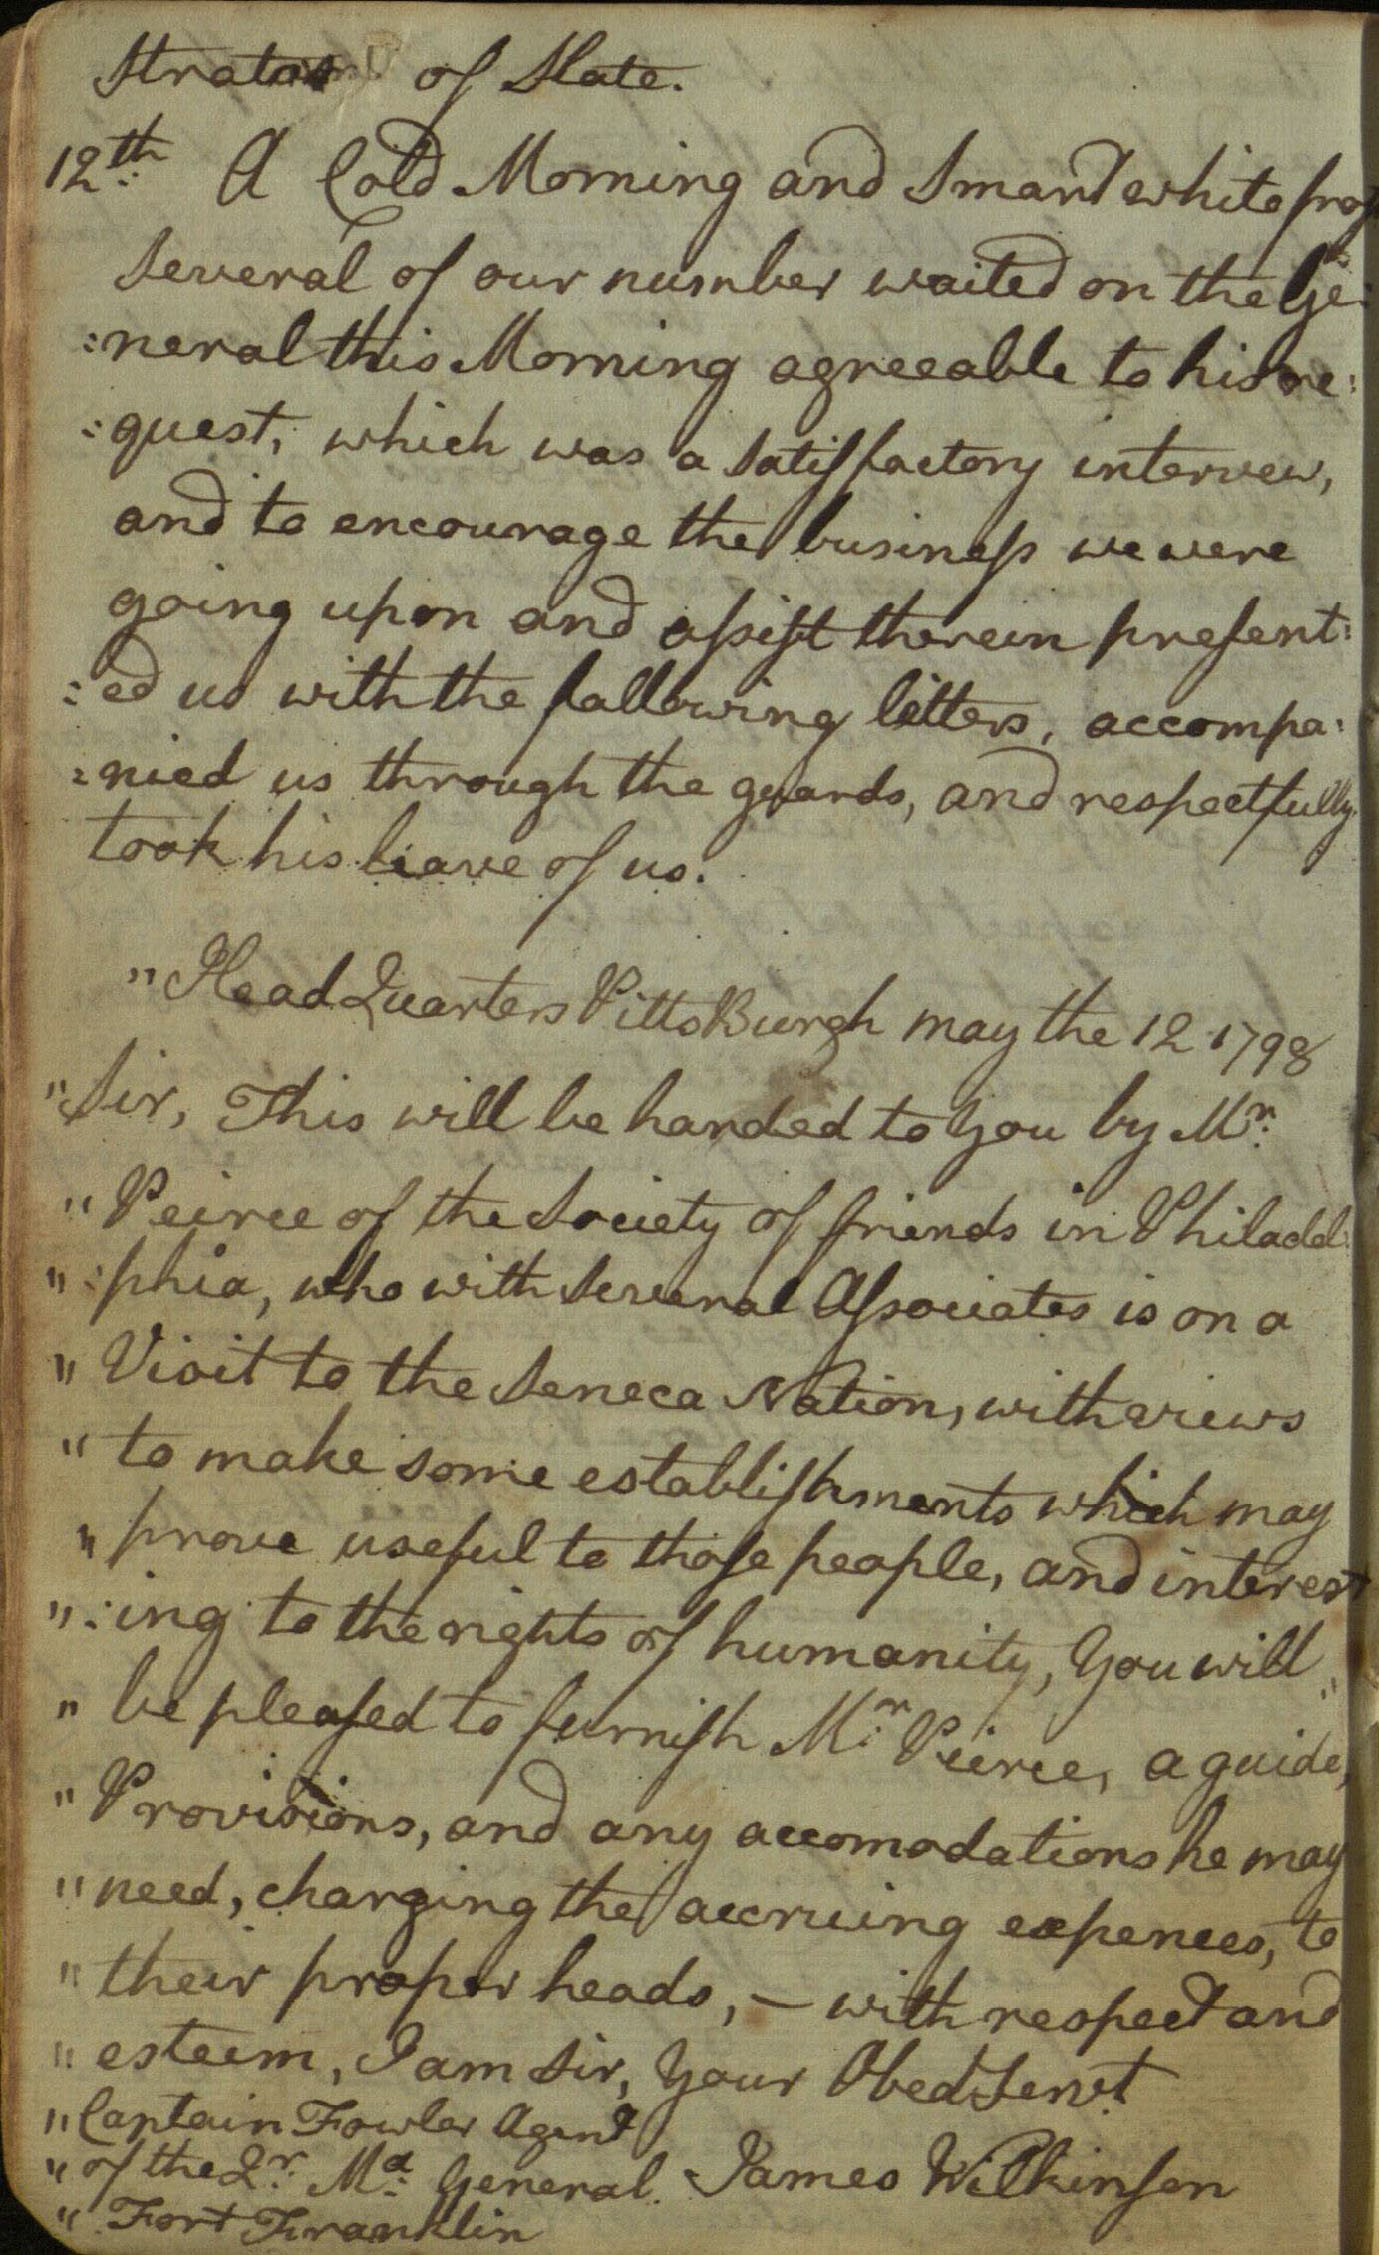 Stratas of Slate.
12th: A Cold Morning and Smart white frost
Several of our number waited on the Ge:
:neral this Morning agreeable to his re:
:quest, which was a Satisfactory intervew,
and to encourage the business we were
going upon and assist therein present:
:ed us with the following letters, accompa:
:nied us through the guards, and respectfully
took his leave of us.
"Head Quarters PittsBurgh may the 12 1798
"Sir, This will be handed to You by Mr:
"Peirce of the Society of friends in Philadel:
":phia, who with Several Associates is on a
"Visit to the Seneca Nation, with views
"to make some establishments which may
"prove useful to those people, and interest
":ing to the rights of humanity, You will
"be pleased to furnish Mr: Peirce, a guide,
"Provisions, and any accomodations he may
"need, charging the accruing expences, to
"their proper heads, – with respect and
"esteem, I am Sir, Your Obed Servt
"Captain Fowler Agent
"of the Qr: Ma: General. James Wilkinson
"Fort Franklin